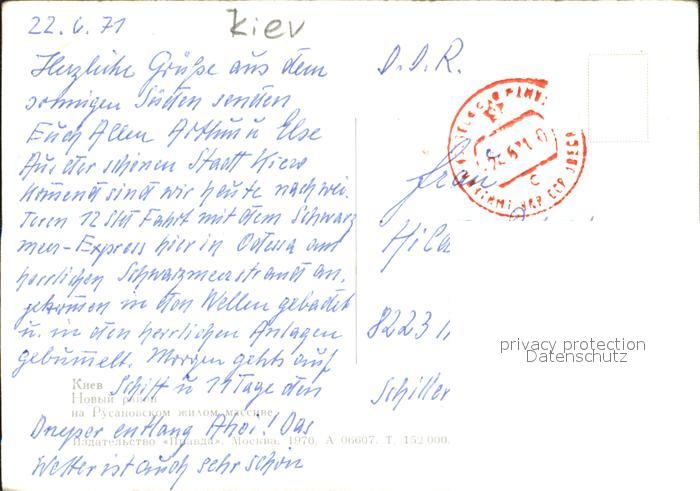 22.6.71
Kiev
Herzliche Grüße aus dem
sonnigen Süden senden
Euch Allen Arthur u Else
Aus der schönen Stadt Kiew
kommend sind wir heute nach wei-
teren 12 Std Fahrt mit dem Schwarz
meer-Express hier in Odessa am
herrlichen Schwarzmeerstrand an,
gekommen in den Wellen gebadet
u. in den herrlichen Anlagen
gebummelt. Morgen gehts auf
Schiff u 11 Tage den
Dnepr entlang Ahoi! Das
Wetter ist auch sehr schön
Киев
Новый район
на Русановском жилом массиве
Издательство «Правда». Москва. 1970. А 06607. Т. 152 000.
D.D.R.
Frau
Hil
8223
Schiller
privacy protection
Datenschutz